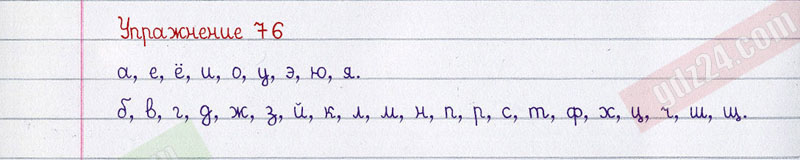 Упражнение 76
а, е, ё, и, о, у, э, ю, я.
б, в, г, д, ж, з, й, к, л, м, н, п, р, с, т, ф, х, ц, ч, ш, щ.
gdz24.com